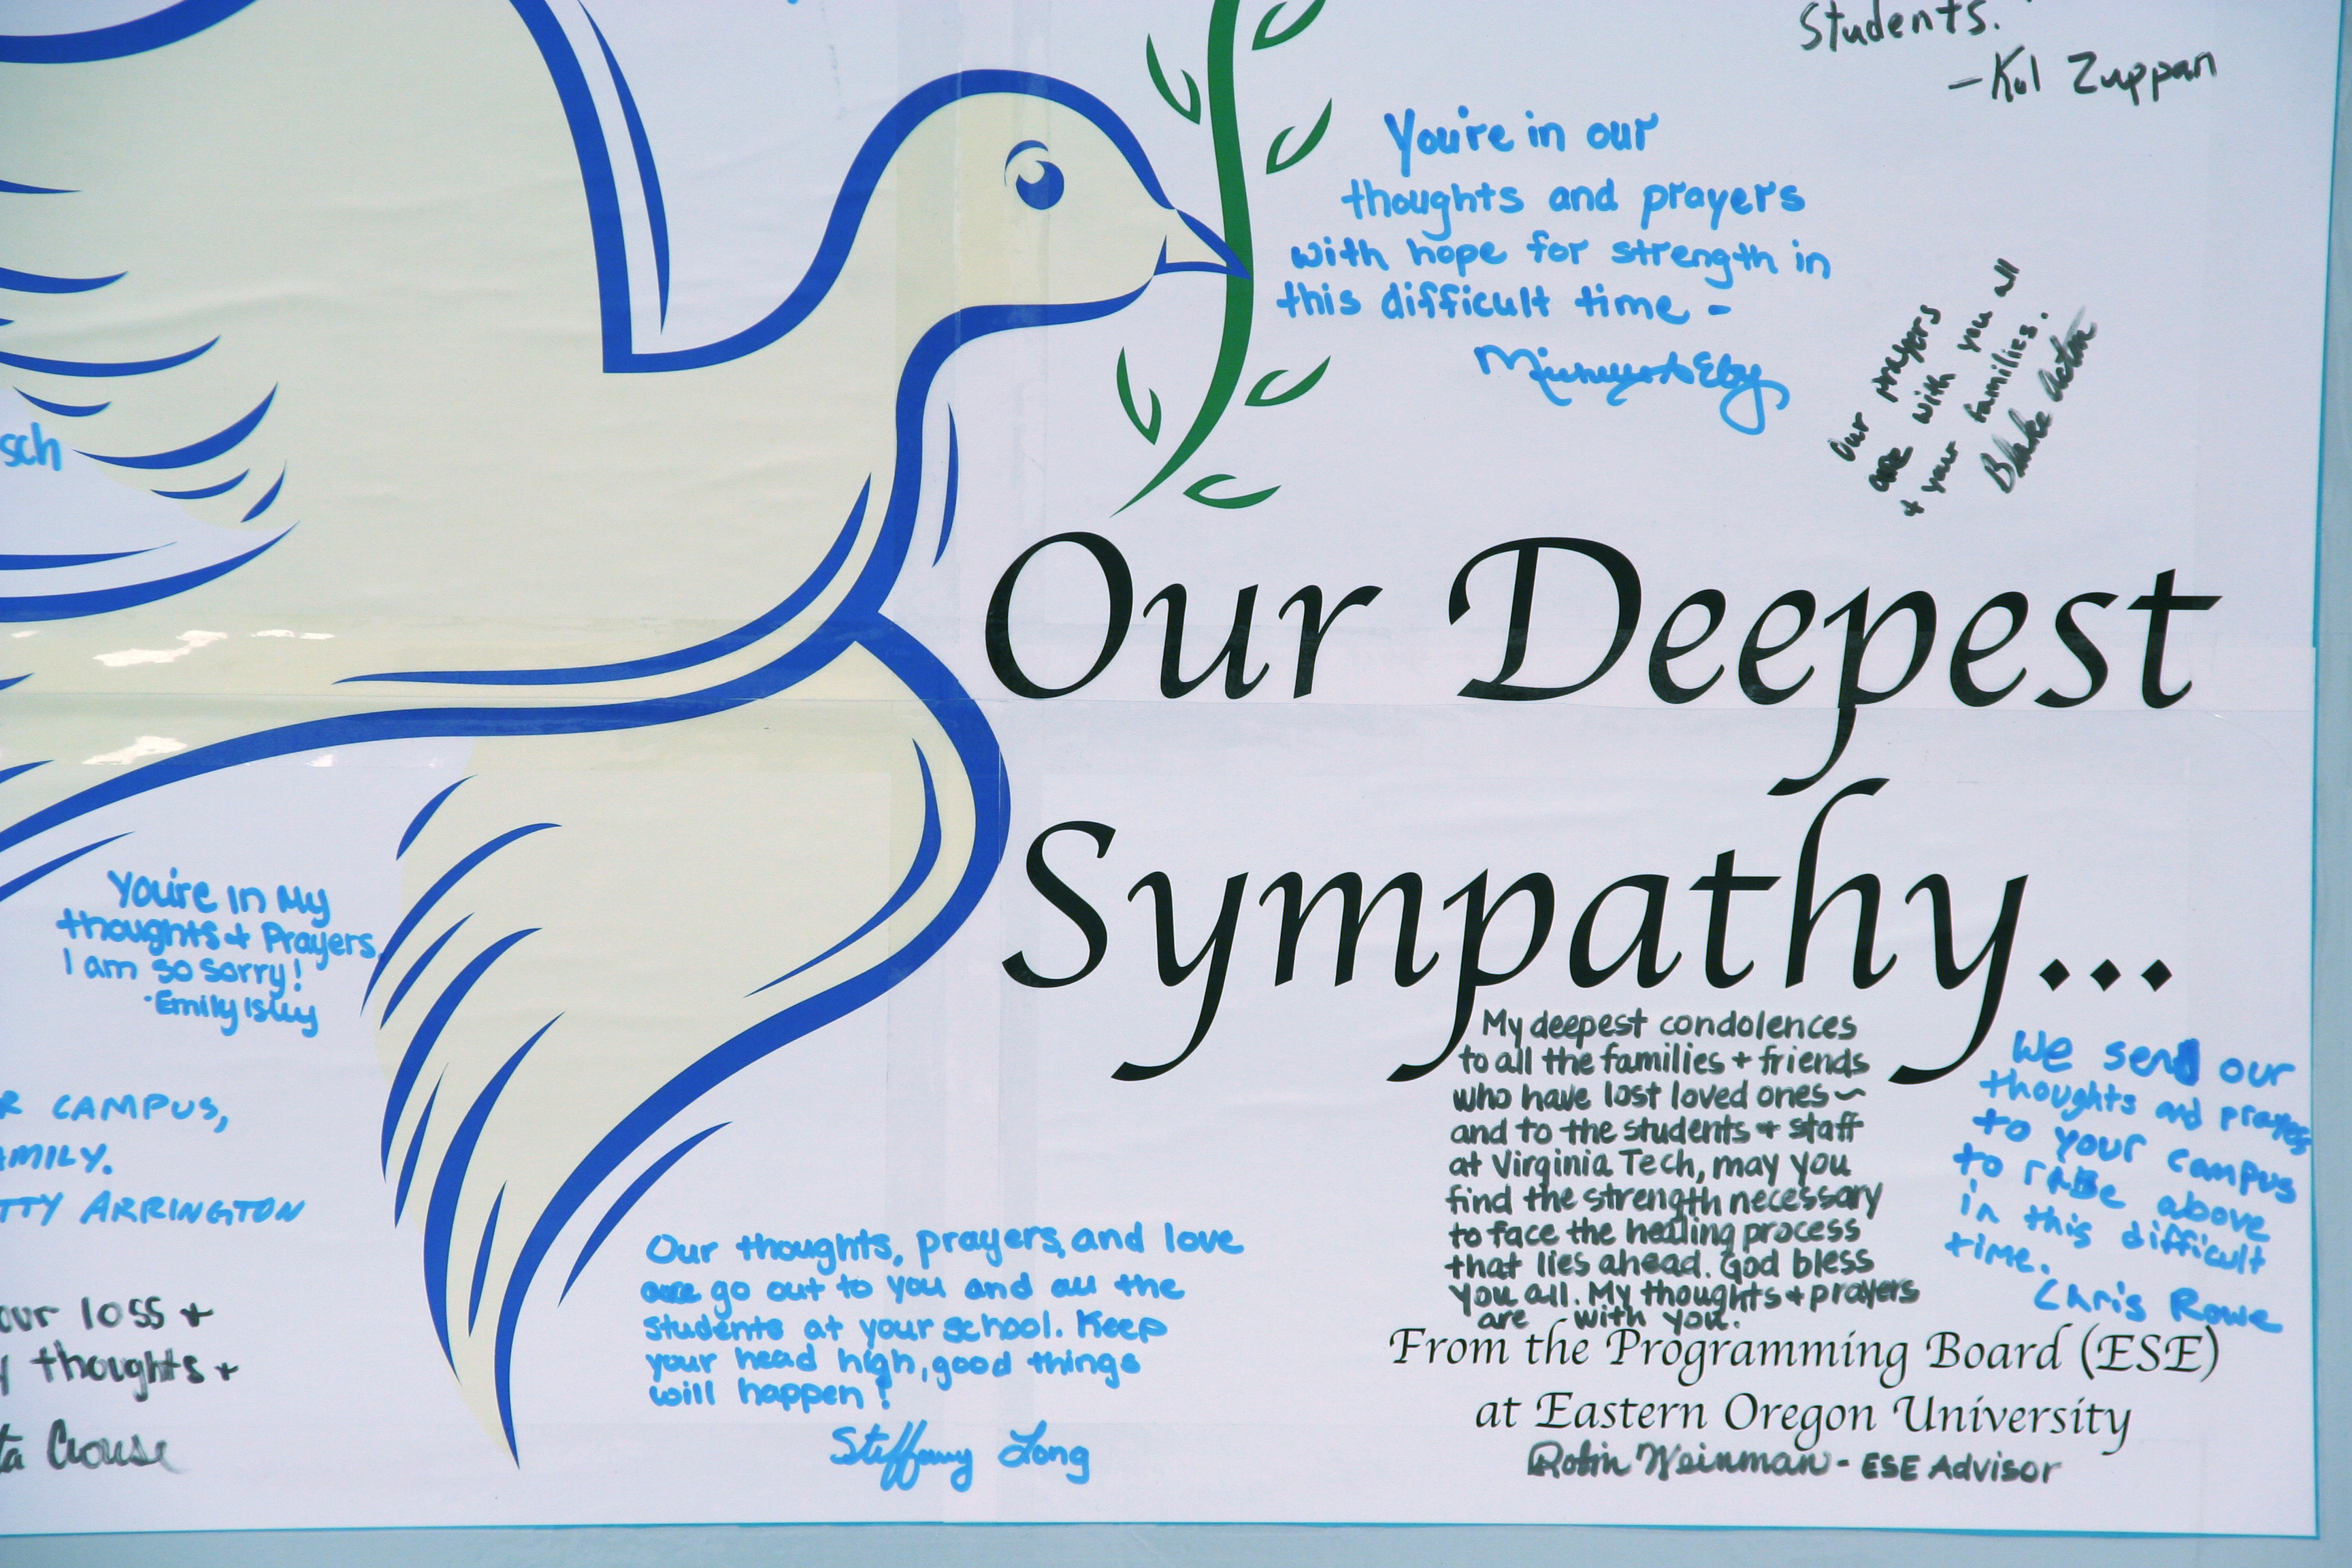 Students.
- Kol Zuppan
You're in our
thoughts and prayers
with hope for strength in
this difficult time -
Eby
Our prayers
are with you all
+ your families.
Blake Acton
sch
Our Deepest
Sympathy...
You're In My
thoughts + Prayers,
I am so sorry!
- Emily Isley
R CAMPUS,
AMILY.
TTY ARRINGTON
our loss +
y thoughts +
ta Crouse
Our thoughts, prayers, and love
go out to you and all the
students at your school. Keep
your head high, good things
will happen!
Steffany Long
My deepest condolences
to all the families + friends
who have lost loved ones ~
and to the students + staff
at Virginia Tech, may you
find the strength necessary
to face the healing process
that lies ahead. God bless
you all. My thoughts + prayers
are with you.
We send our
thoughts and prayers
to your campus
to rise above
in this difficult
time.
Chris Rowe
From the Programming Board (ESE)
at Eastern Oregon University
Robin Weinman - ESE Advisor